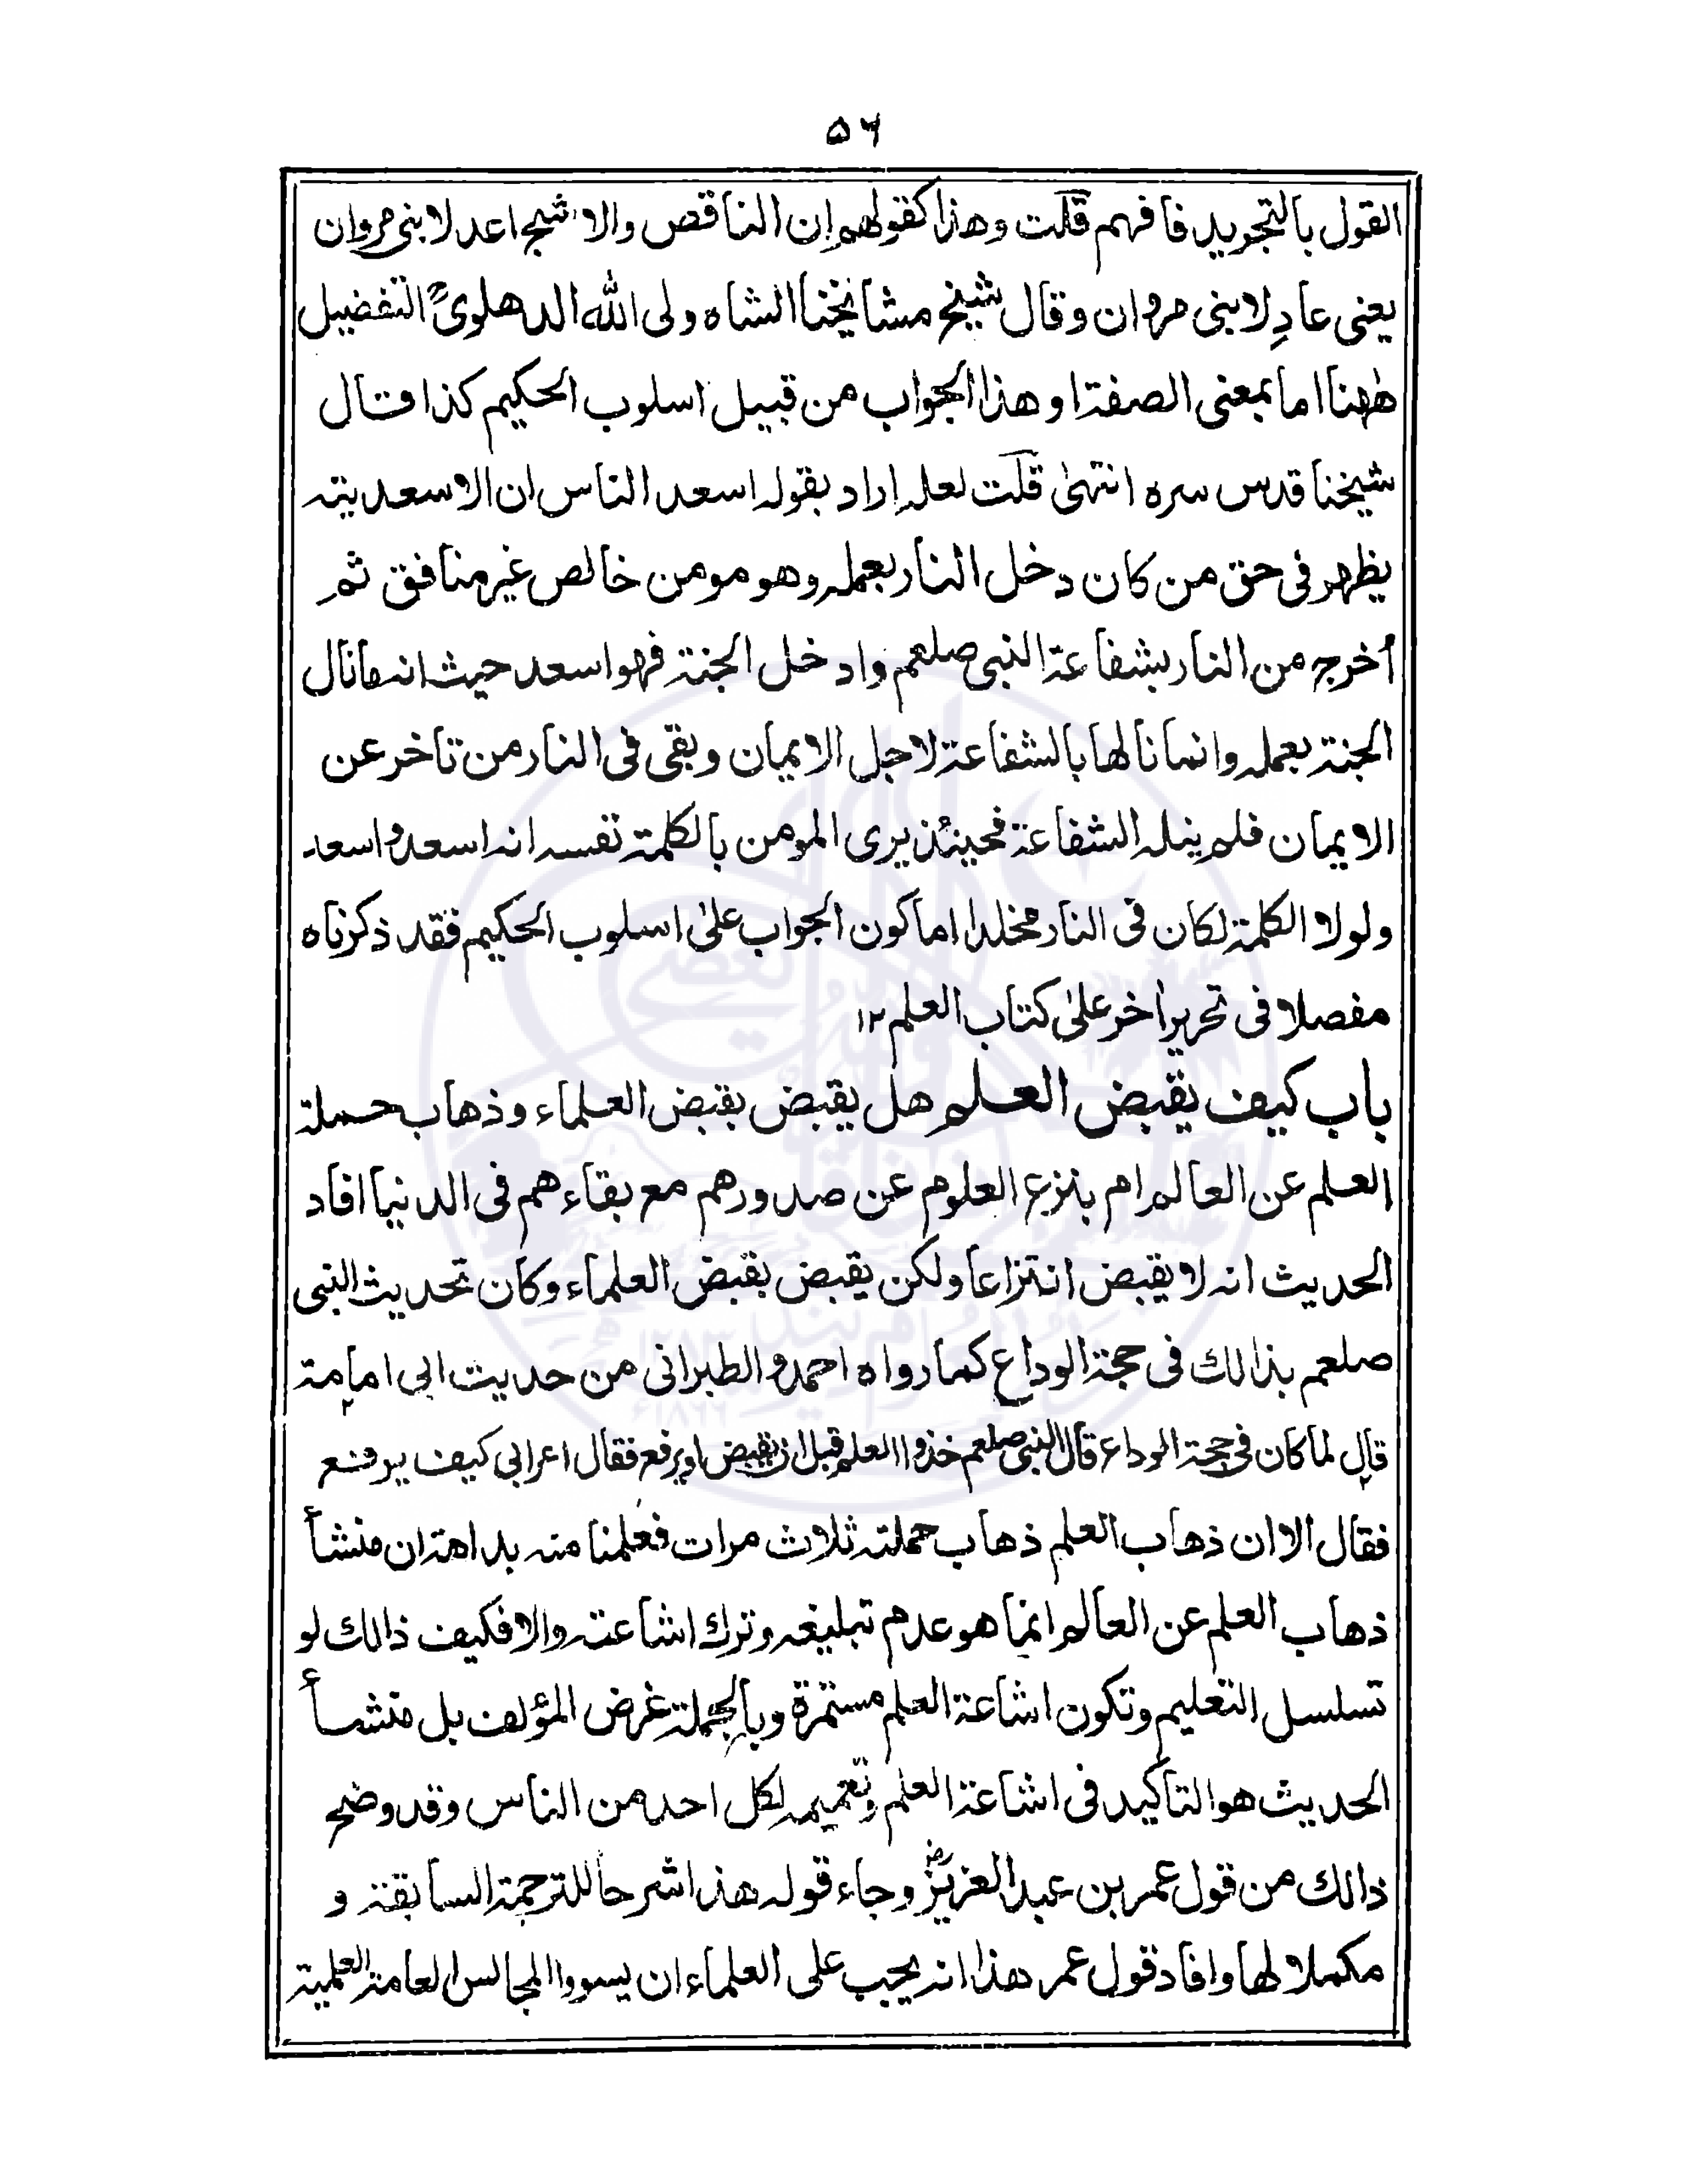 ۵۶
القول بالتجريد فافهم قلت وهذا كقولهم ان الناقص والاشج اعدلا بنى مروان
يعنى عادلا بنى مروان وقال شيخ مشائخنا الشاه ولى الله الدهلوىؒ التفضيل
ههنا اما بمعنى الصفة او هذا الجواب من قبيل اسلوب الحكيم كذا قال
شيخنا قدس سره انتهىٰ قلت لعله اراد بقوله اسعد الناس ان الاسعدية
يظهر فى حق من كان دخل النار بعمله وهو مومن خالص غير منافق ثم
أخرج من النار بشفاعة النبى صلعم وادخل الجنة فهو اسعد حيث انه مانال
الجنة بعمله وانما نالها بالشفاعة لاجل الايمان وبقى فى النار من تاخر عن
الايمان فلم ينله الشفاعة فحينئذ يرى المومن بالكلمة نفسه انه اسعد واسعد
ولولا الكلمة لكان فى النار مخلدا اما كون الجواب علىٰ اسلوب الحكيم فقد ذكرناه
مفصلا فى تحرير اٰخر علىٰ كتاب العلم ۱۲
باب كيف يقبض العلم هل يقبض بقبض العلماء وذهاب حملة
العلم عن العالم ام بنزع العلوم عن صدورهم مع بقاءهم فى الدنيا افاد
الحديث انه لا يقبض انتزاعا ولكن يقبض بقبض العلماء وكان تحديث النبى
صلعم بذالك فى حجة الوداع كما رواه احمد والطبرانى من حديث ابى امامة
قال لما كان فى حجة الوداع قال النبى صلعم خذوا العلم قبل ان يقبض او يرفع فقال اعرابى كيف يرفع
فقال الا ان ذهاب العلم ذهاب حملته ثلاث مرات فعلمنا منه بداهة ان منشأ
ذهاب العلم عن العالم انما هو عدم تبليغه وترك اشاعته والا فكيف ذالك لو
تسلسل التعليم وتكون اشاعة العلم مستمرة وبالجملة غرض المؤلف بل منشأ
الحديث هو التاكيد فى اشاعة العلم وتعميمه لكل احد من الناس وقد وضح
ذالك من قول عمر بن عبد العزيزؓ وجاء قوله هذا شرحاً للترجمة السابقة و
مكملا لها وافاد قول عمر هذا انه يجب على العلماء ان يسووا المجالس العامة العلمية